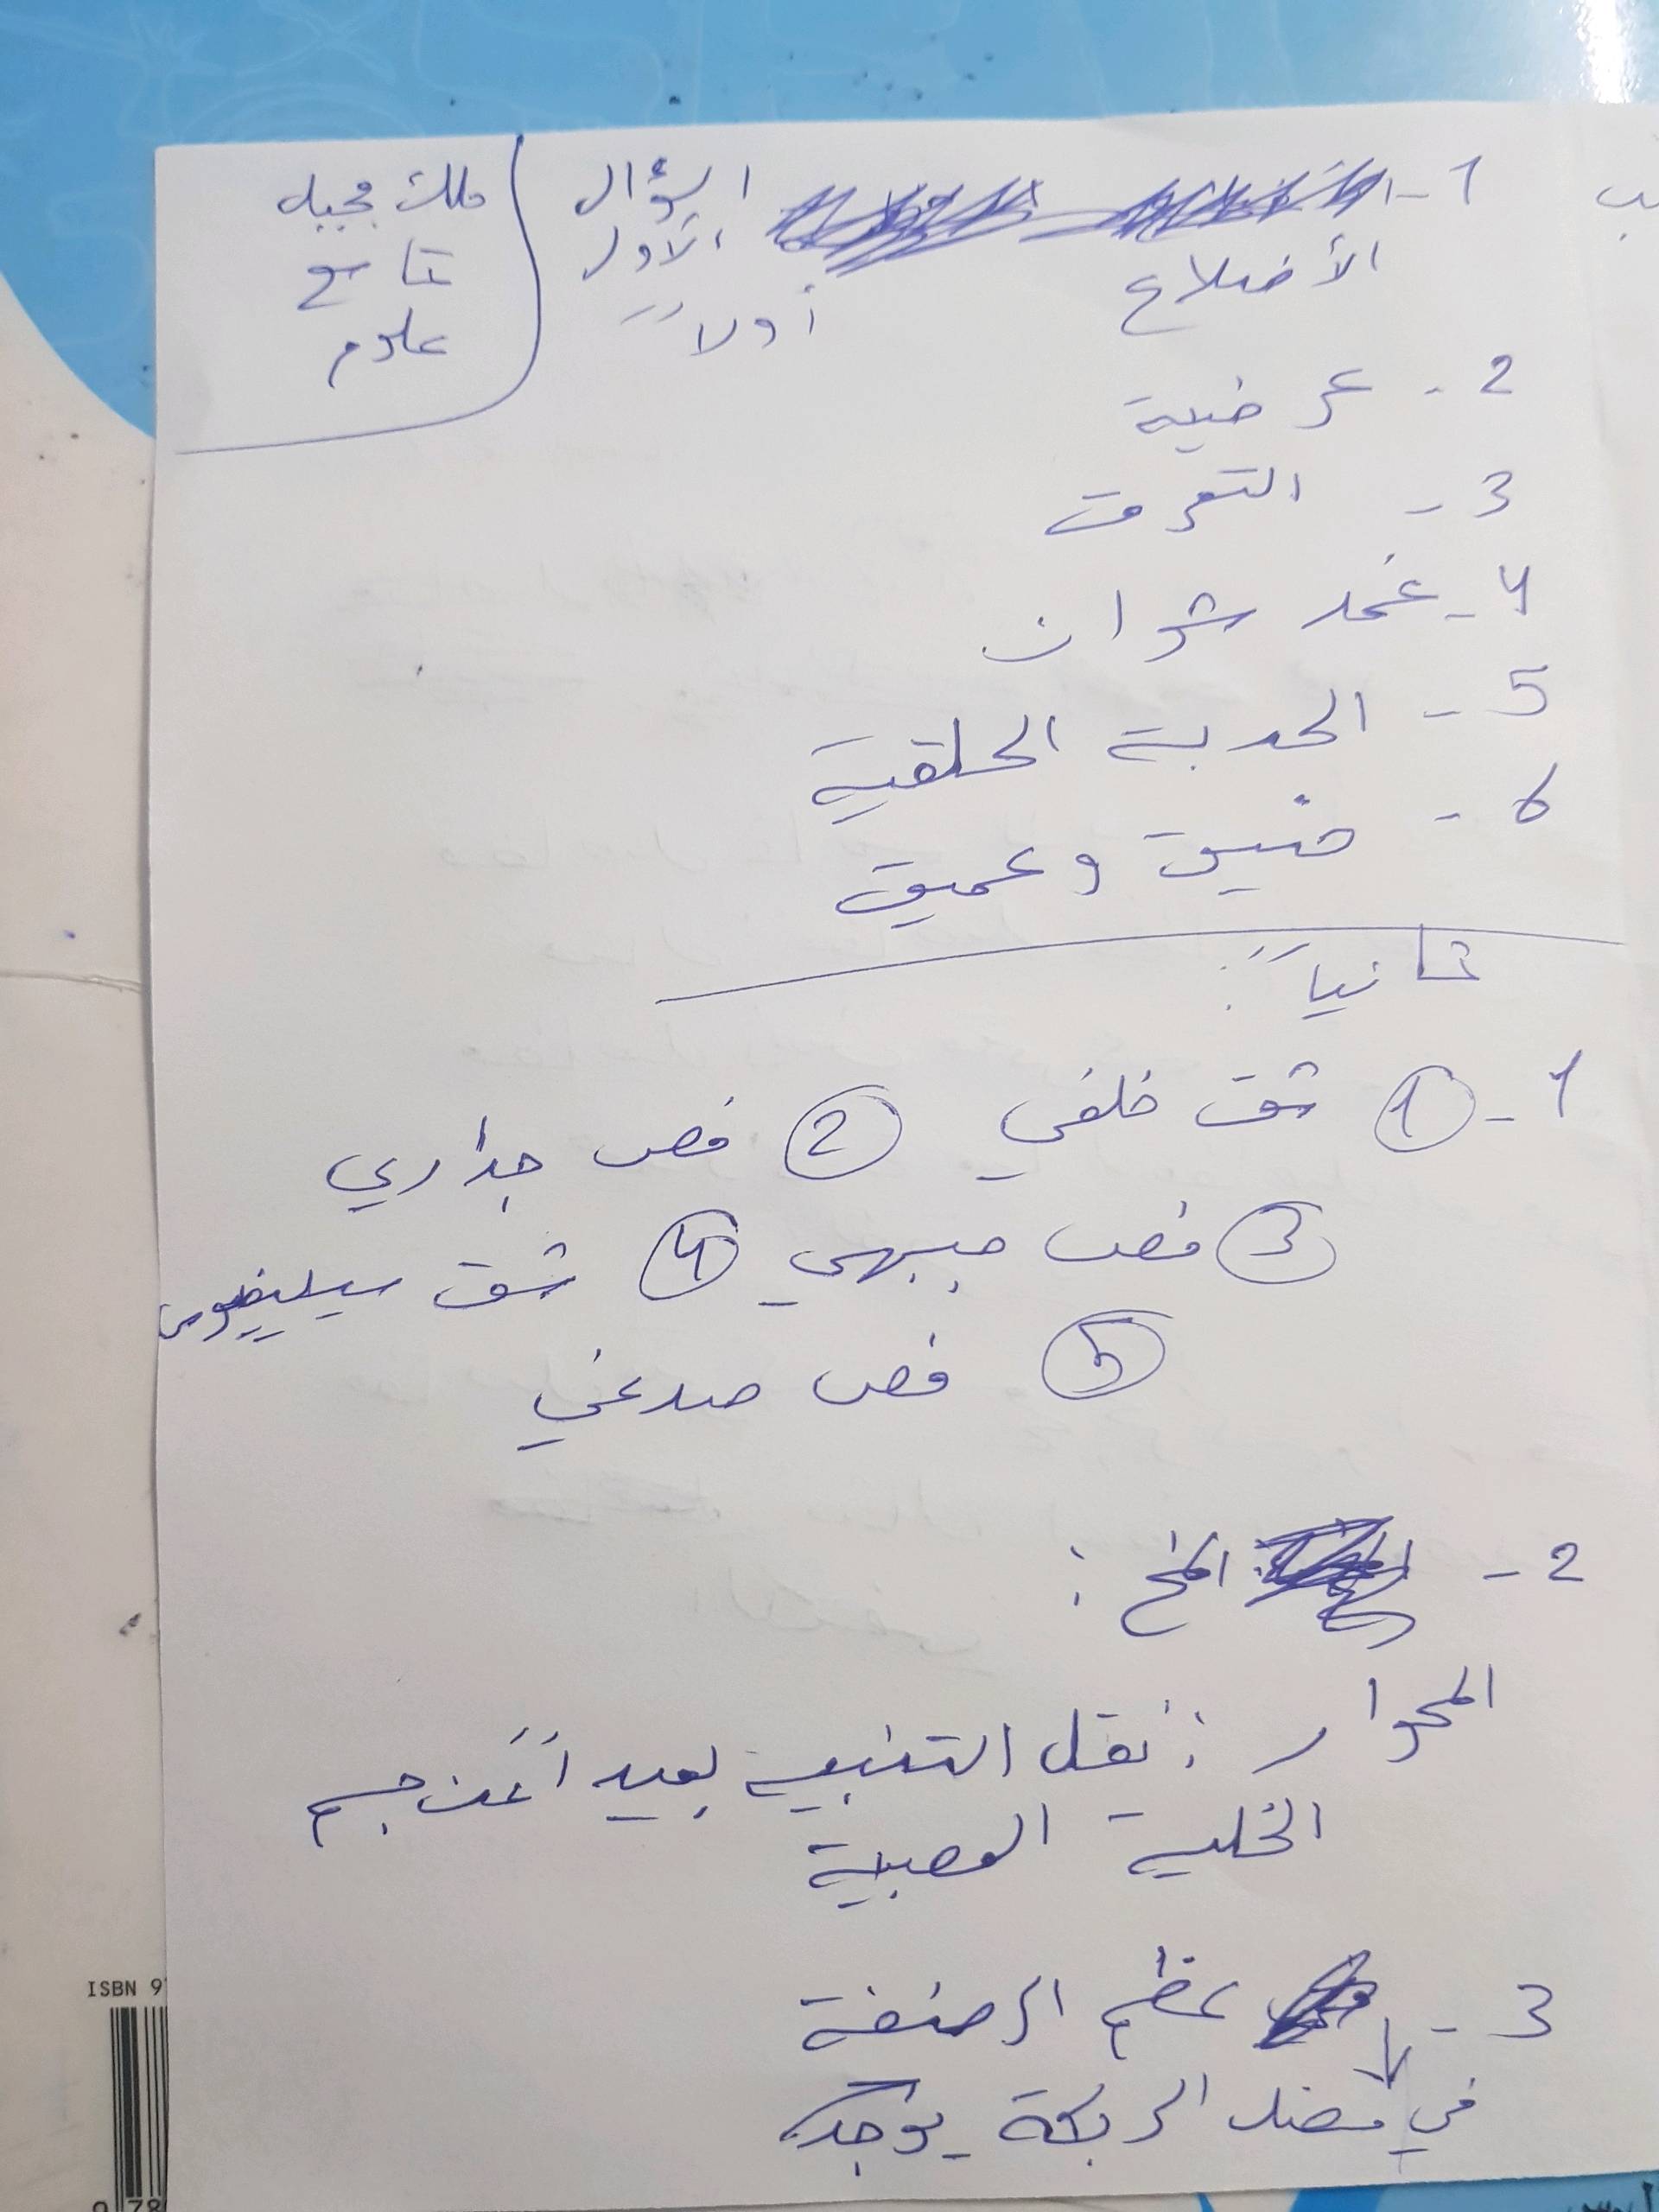 ملك مجبل
تاسع
علوم
السؤال
الأول
أولاً:
1-
الأضلاع
2- عرضية
3- التعرق
4- غمد شوان
5- الحدبة الحلقية
6- ضيق وعميق
ثانياً:
1- ① شق خلفي ② فص جداري
③ فص جبهي ④ شق سيلفيوس
⑤ فص صدغي
2- المخ:
المحوار: نقل التنبيه بعيداً عن جسم
الخلية العصبية
3- عظم الرضفة
في مفصل الركبة يوجد
ISBN 9
9 78